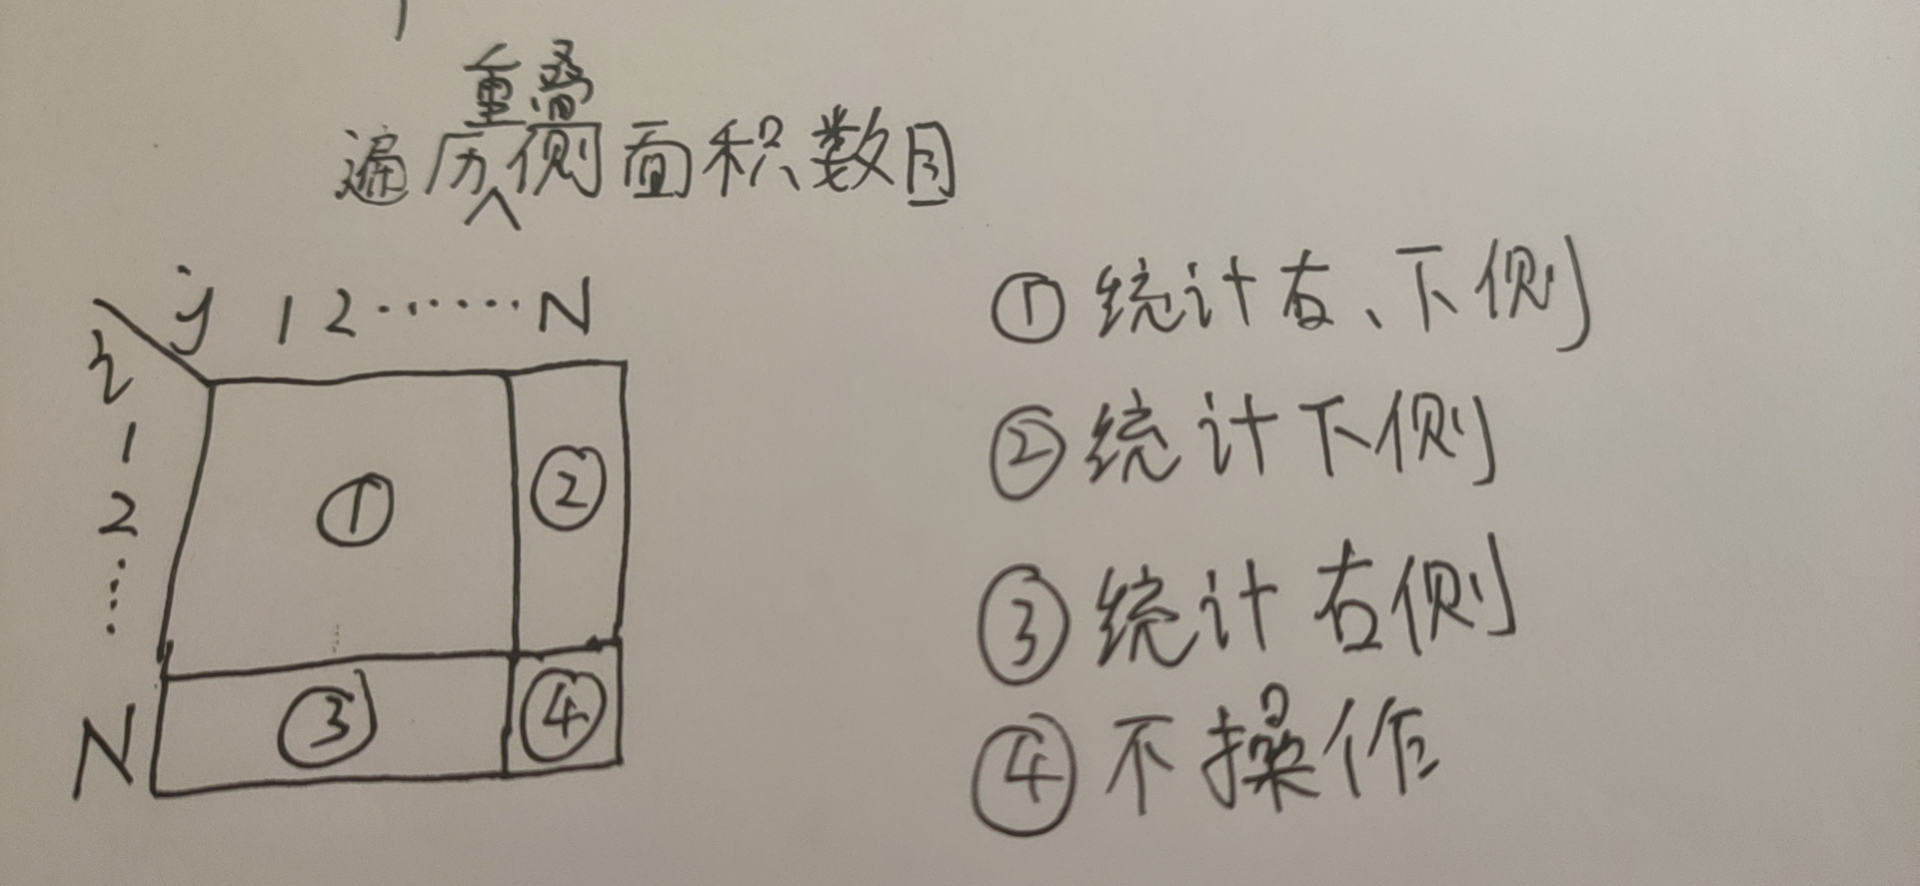 遍历重叠侧面积数目
j 1 2 ······ N
i
1
2
⋮
N
①
②
③
④
① 统计右、下侧
② 统计下侧
③ 统计右侧
④ 不操作